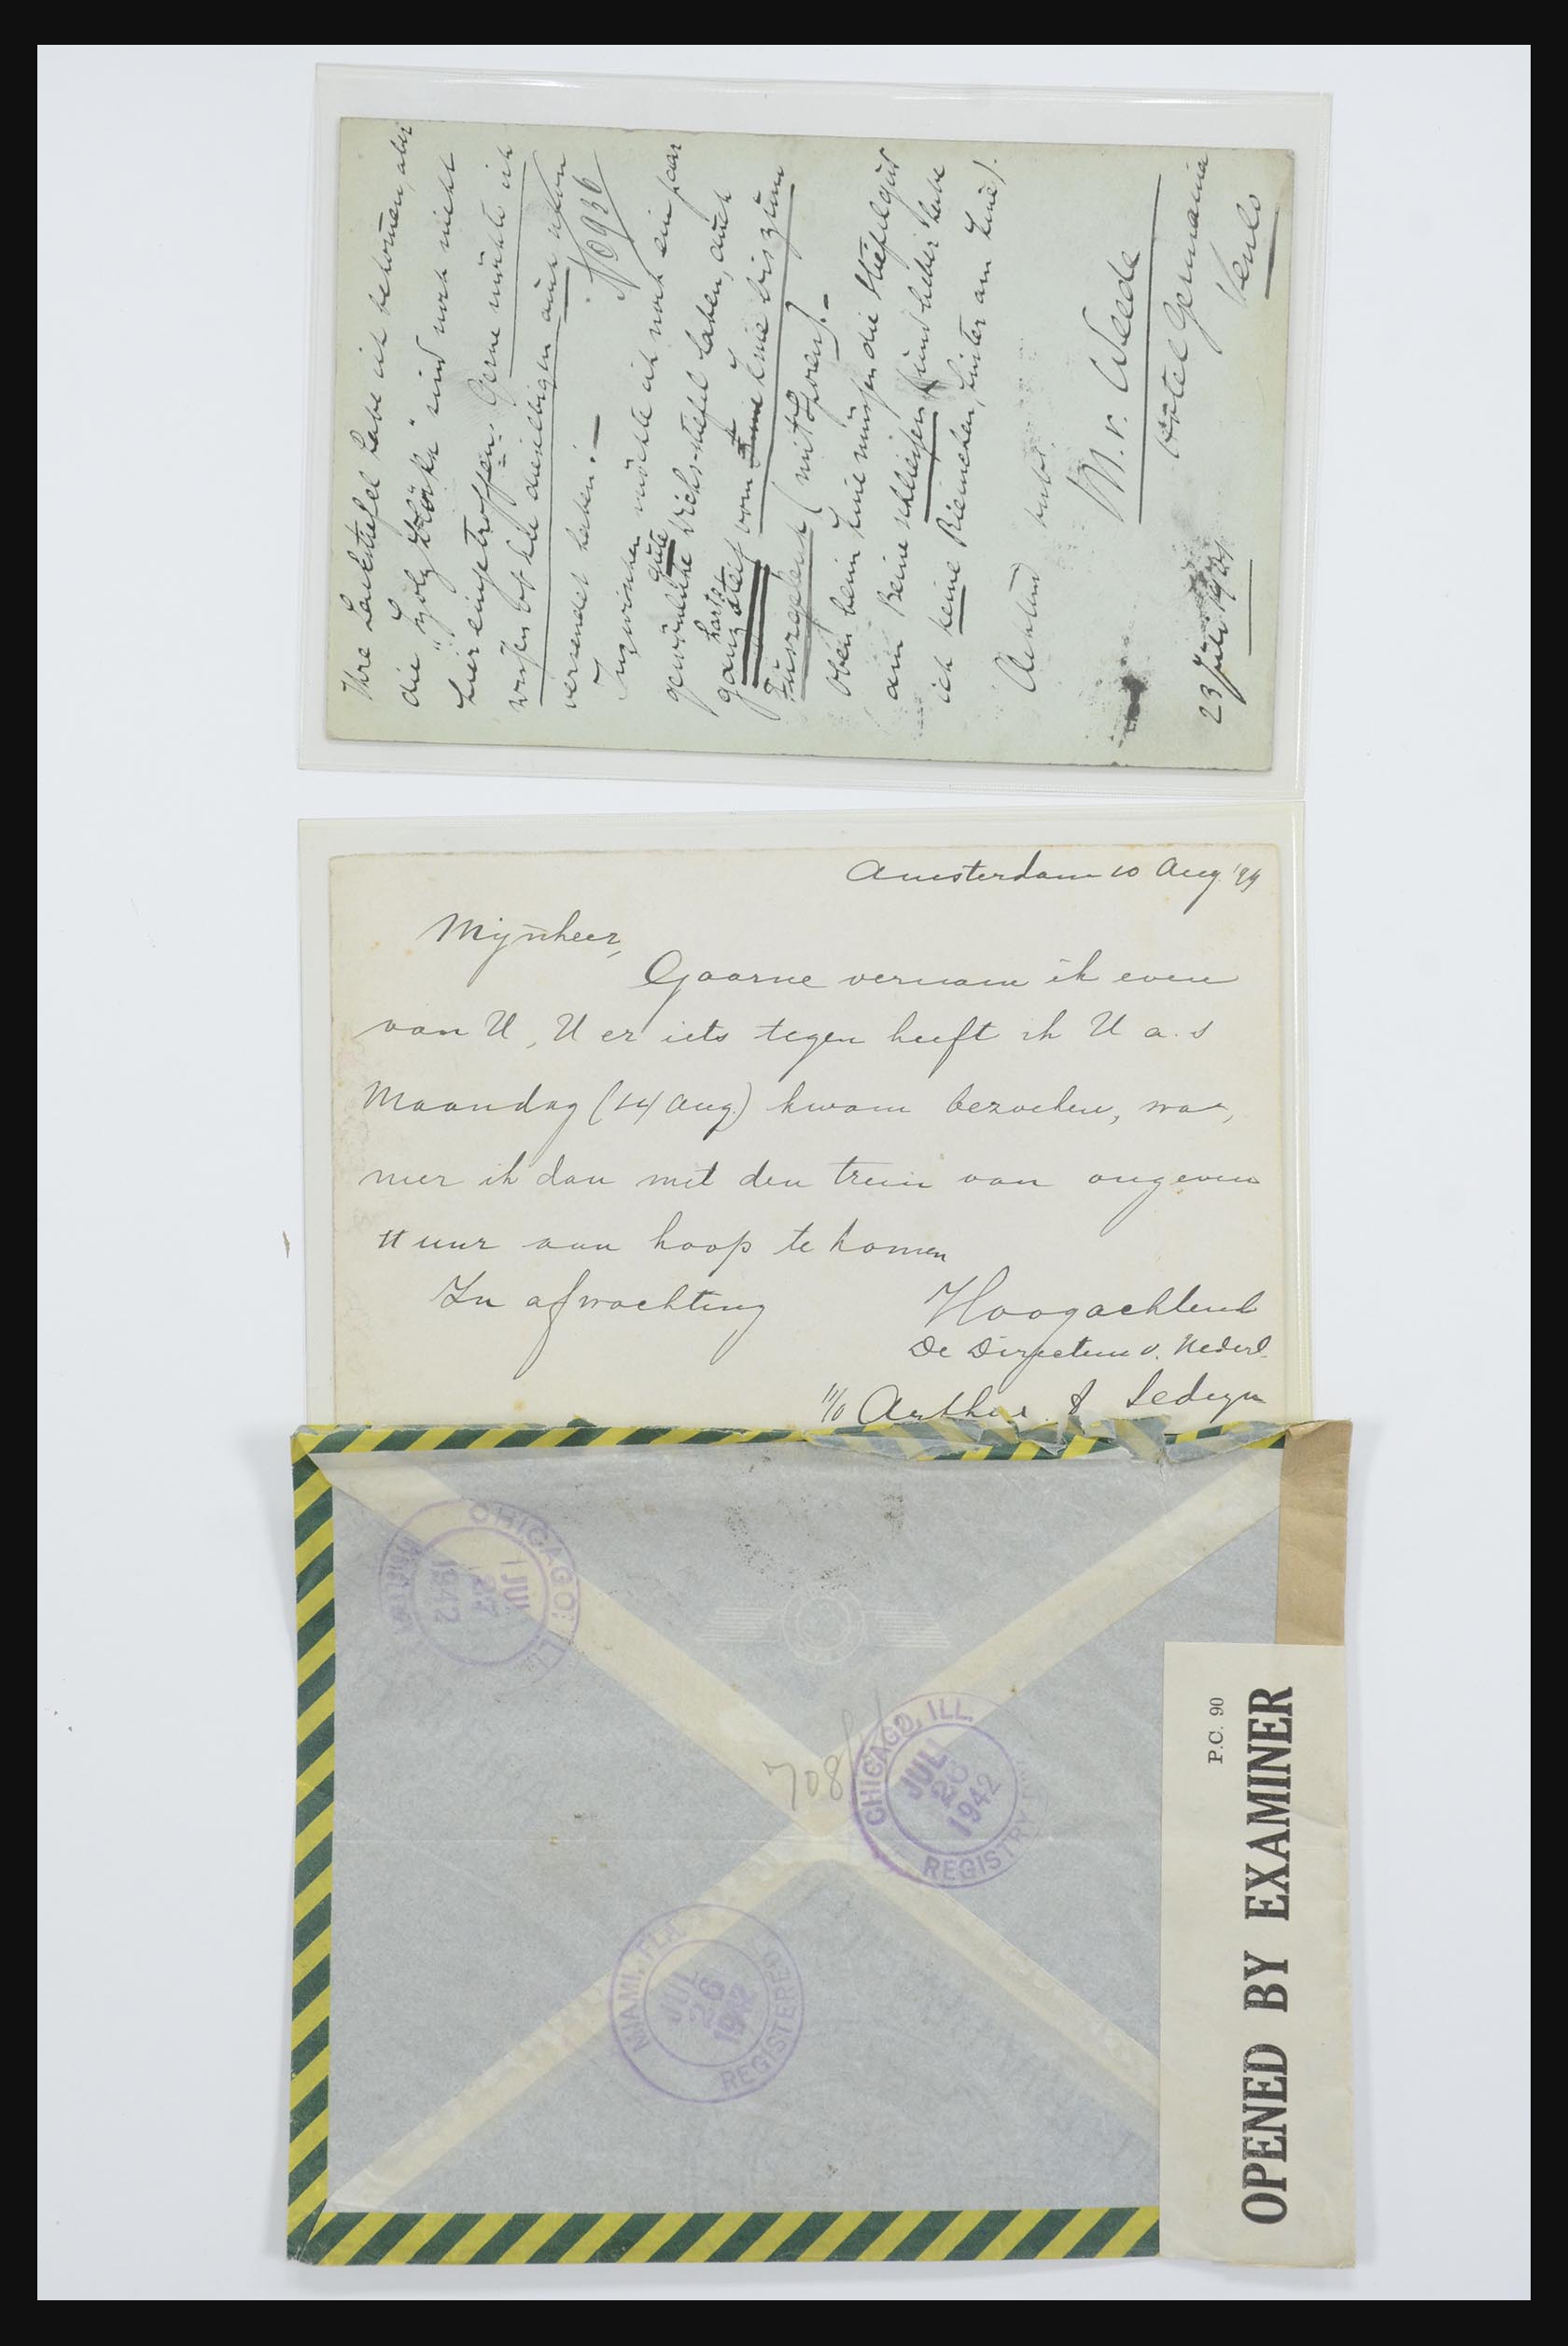 Ihre Lackstiefel habe ich bekommen, aber
die "Holzblöcke" sind noch nicht
hier eingetroffen. Gerne möchte ich
wissen ob Sie dieselbigen auch schon
versendet haben.
No 936
Inzwischen möchte ich noch ein paar
gute
gewöhnliche Wichs-stiefel haben, auch
harte
ganz steif vom Knie bis zum
Fussgelenk (mit Sporen).
Oben beim Knie müssen die Stiefel gut
am Beine schliessen und lieber habe
ich keine Riemchen, hinter am Knie).
Achtend
M. v. Weede
Hôtel Germania
Venlo
23 Juli 1921
Amsterdam 10 Aug. '99
Mijnheer,
Gaarne vernam ik even
van U, U er iets tegen heeft ik U a.s
Maandag (14 Aug.) kwam bezoeken, wan,
neer ik dan met den trein van ongeveer
11 uur aan hoop te komen
In afwachting
Hoogachtend
De Directeur v. Nederl.
Arthur
CHICAGO, ILL.
JUL
27
1942
708
CHICAGO, ILL.
JUL
26
1942
REGISTRY
MIAMI, FLA.
JUL
26
1942
REGISTERED
P.C. 90
OPENED BY EXAMINER